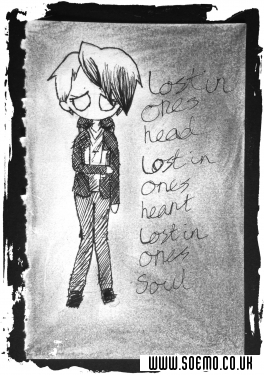 Lost in
ones
head
Lost in
ones
heart
Lost in
ones
Soul
WWW.SOEMO.CO.UK